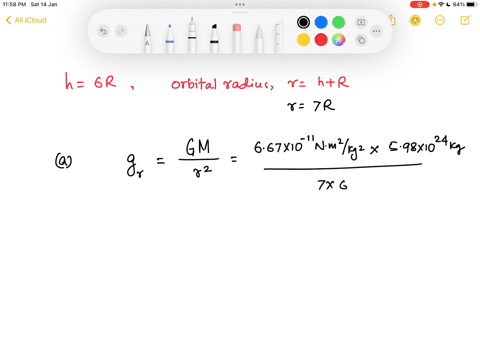 11:58 PM Sat 14 Jan
84%
All iCloud
h = 6R , orbital radius, r = h+R
r = 7R
(a) g_r = GM / r² = 6.67×10⁻¹¹ N·m²/kg² × 5.98×10²⁴ kg / 7×6